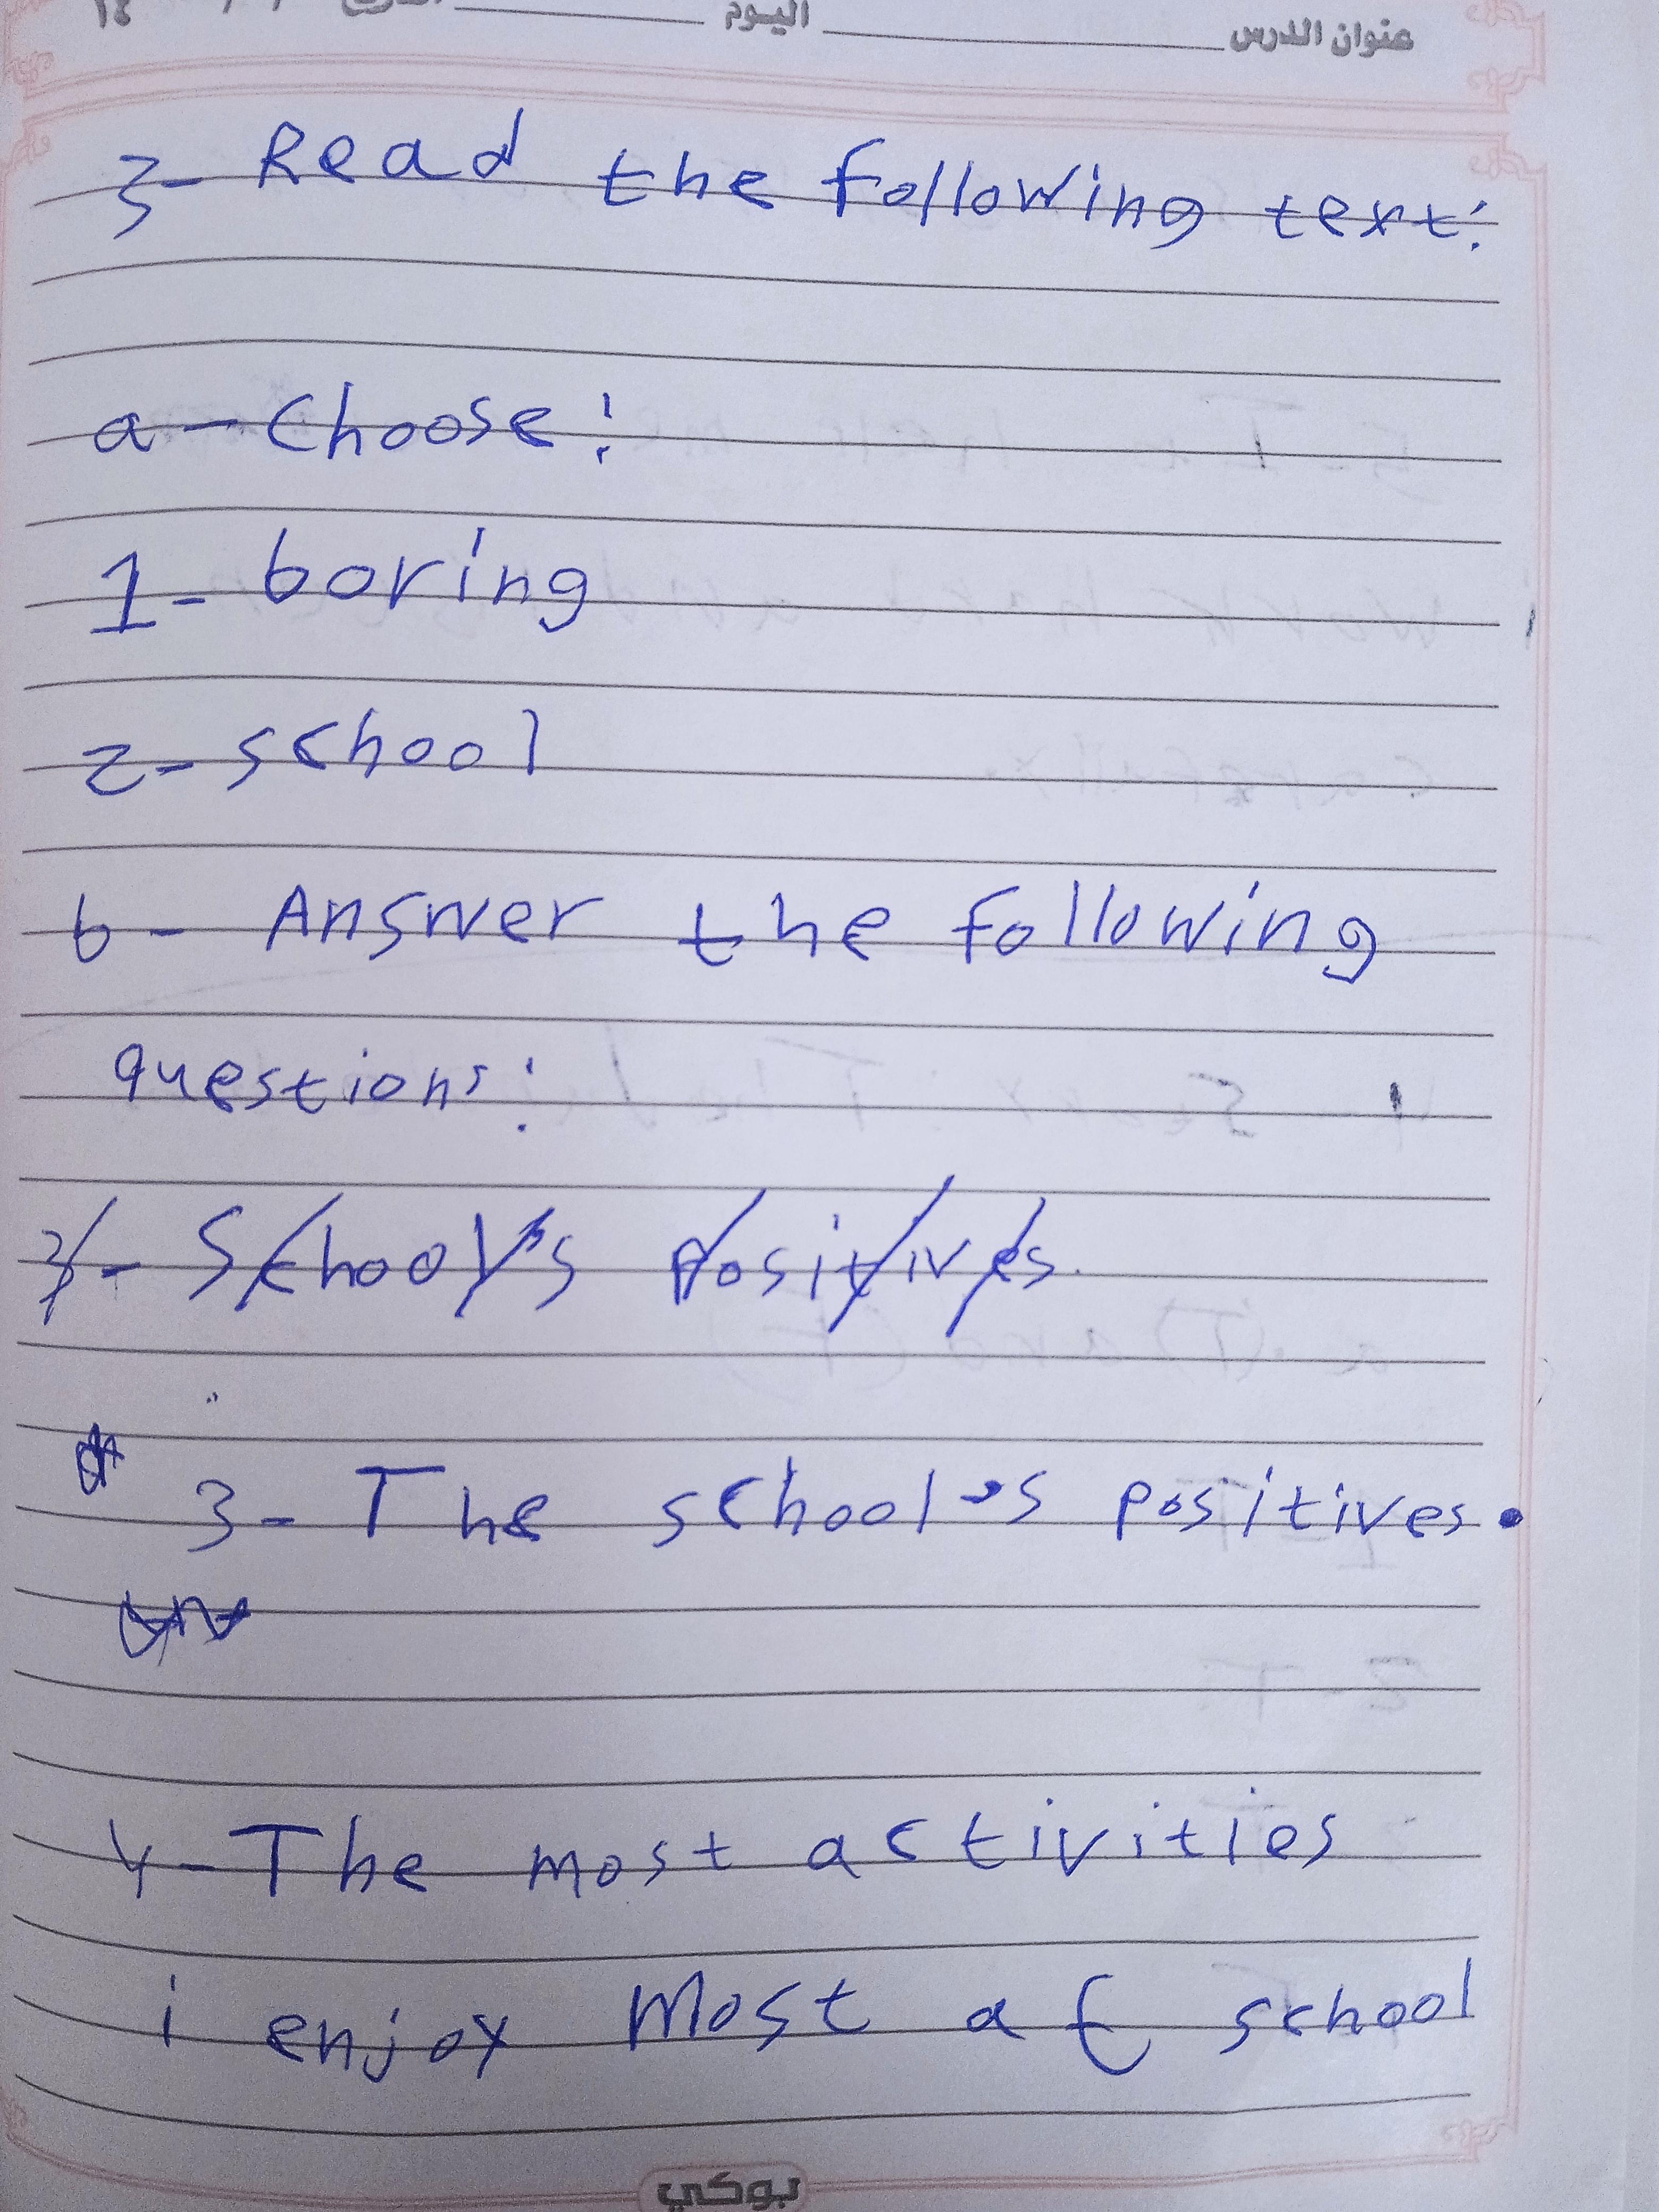 عنوان الدرس اليوم ١٤
3- Read the following text:
a- Choose:
1- boring
2- school
b- Answer the following
questions:
3- School's positives.
3- The school's positives.
4- The most activities
i enjoy most at school
بوكي